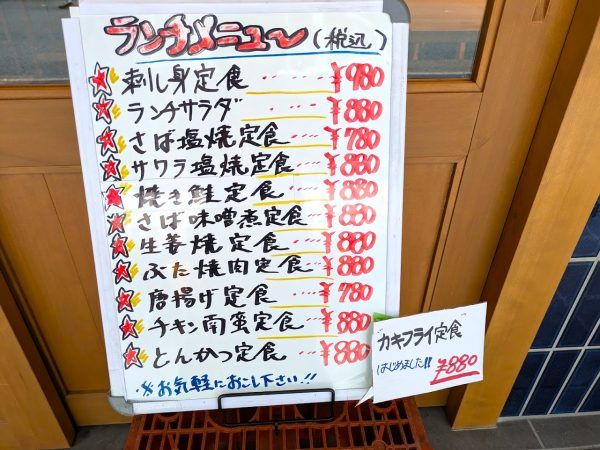 ランチメニュ〜(税込)
刺し身定食 ・・・・・ ¥980
ランチサラダ ・・・・ ¥880
さば塩焼定食 ・・・・ ¥780
サワラ塩焼定食 ・・・ ¥880
焼き鮭定食 ・・・・ ¥880
さば味噌煮定食 ・・・ ¥880
生姜焼定食 ・・・・ ¥880
ぶた焼肉定食 ・・・ ¥880
唐揚げ定食 ・・・・ ¥780
チキン南蛮定食 ・・・ ¥880
とんかつ定食 ・・・・ ¥880
※お気軽におこし下さい!!
"カキフライ定食"
はじめました!! ¥880